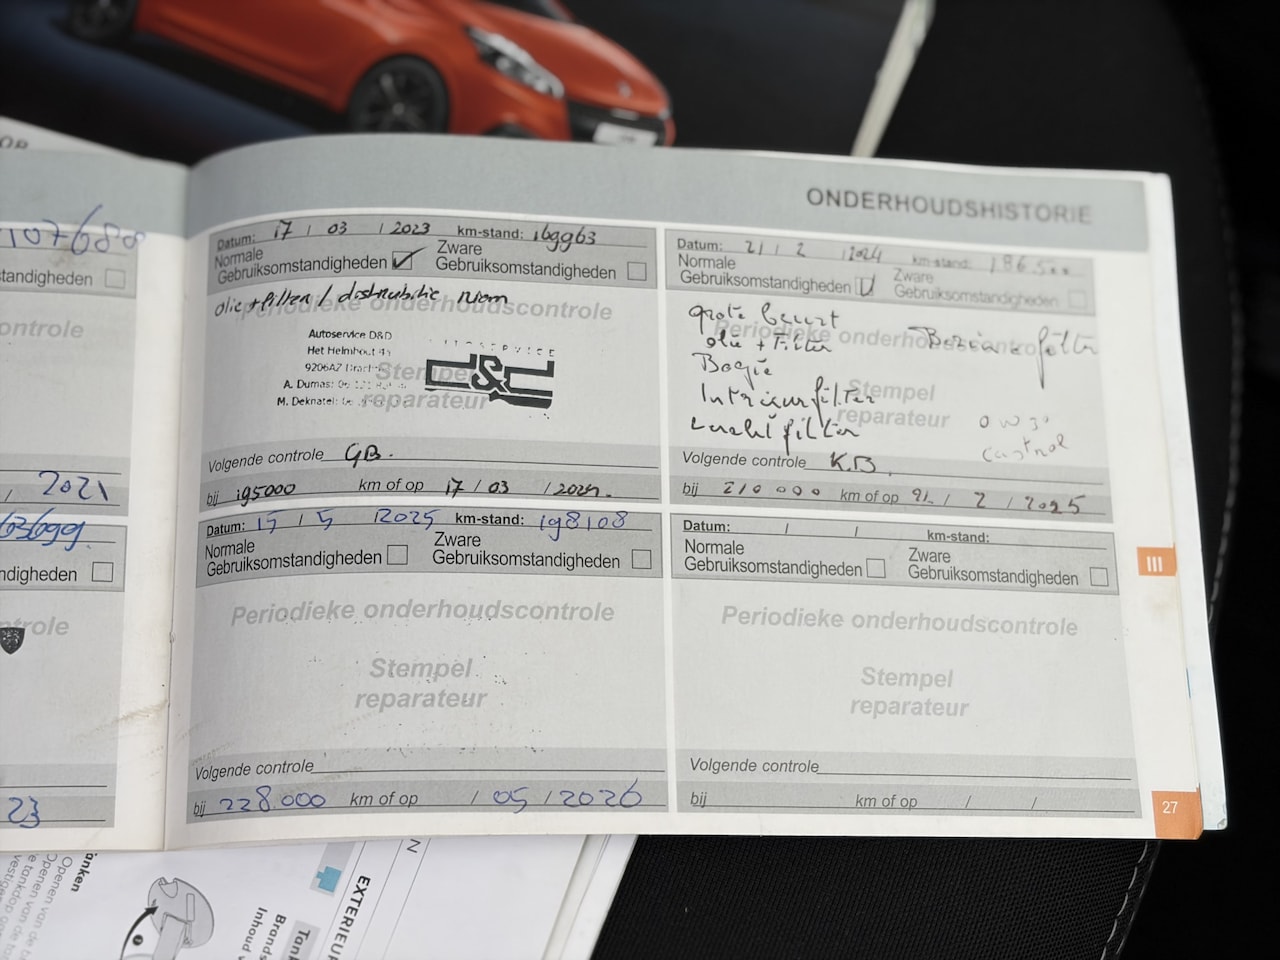 ONDERHOUDSHISTORIE
107680
standigheden
controle
/ 2021
63699.
ndigheden
trole
23
Datum: 17 / 03 / 2023 km-stand: 169963
Normale
Gebruiksomstandigheden
Zware
Gebruiksomstandigheden
olie + filter / distributie riem
Periodieke onderhoudscontrole
Autoservice D&D
Het Helmhout
9206AZ
A. Dumas: 06
M. Deknatel:
d&d
Stempel
reparateur
Volgende controle GB.
bij 195000 km of op 17 / 03 / 2024.
Datum: 21 / 2 / 2024 km-stand: 186500
Normale
Gebruiksomstandigheden
Zware
Gebruiksomstandigheden
grote beurt
Periodieke onderhoudscontrole
olie + Filter
Benzine filter
Bogie
Interieurfilter
Luchtfilter
Stempel
reparateur
0W30
Castrol
Volgende controle K.B.
bij 210 000 km of op 21 / 2 / 2025
Datum: 15 / 5 / 2025 km-stand: 198108
Normale
Gebruiksomstandigheden
Zware
Gebruiksomstandigheden
Periodieke onderhoudscontrole
Stempel
reparateur
Volgende controle
bij 228.000 km of op / 05 / 2026
Datum: / / km-stand:
Normale
Gebruiksomstandigheden
Zware
Gebruiksomstandigheden
Periodieke onderhoudscontrole
Stempel
reparateur
Volgende controle
bij km of op / /
III
27
Tanken
Openen van de
Openen van de
tankdop
EXTERIEUR
Tank
Brands
Inhoud